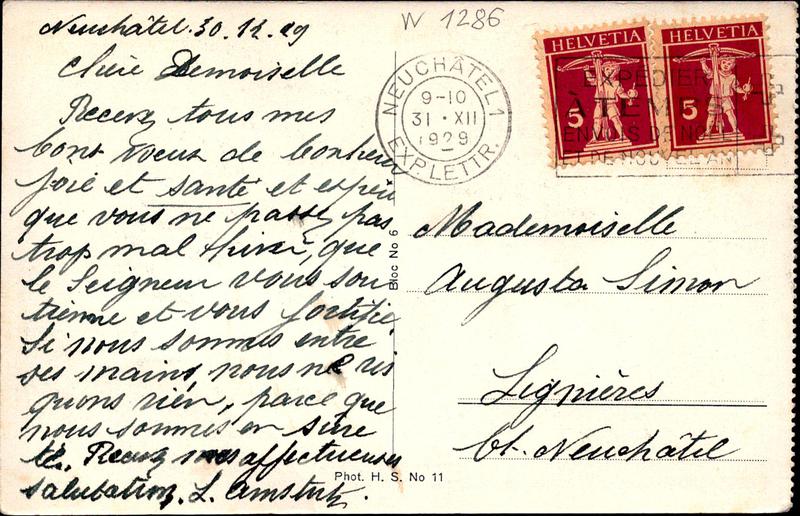 Neuchâtel. 30. 12. 29
Chère Demoiselle
Recevez tous mes
bons voeux de bonheur
joie et santé et espère
que vous ne passez pas
trop mal hiver, que
le Seigneur vous sou
tienne et vous fortifie
Si nous sommes entre
ses mains nous ne ris
quons rien, parce que
nous sommes en sûre
té. Recevez mes affectueuses
salutations. L. Amstutz.
W 1286
NEUCHÂTEL 1
9-10
31 · XII
1929
EXP. LETTR.
HELVETIA
5
HELVETIA
5
EXPÉDIER
À TEMPS
ENVOIS DE NOËL
ET DE NOUVEL AN
Mademoiselle
Augusta Simon
Lignières
Ct. Neuchâtel
Bloc No 6
Phot. H. S. No 11